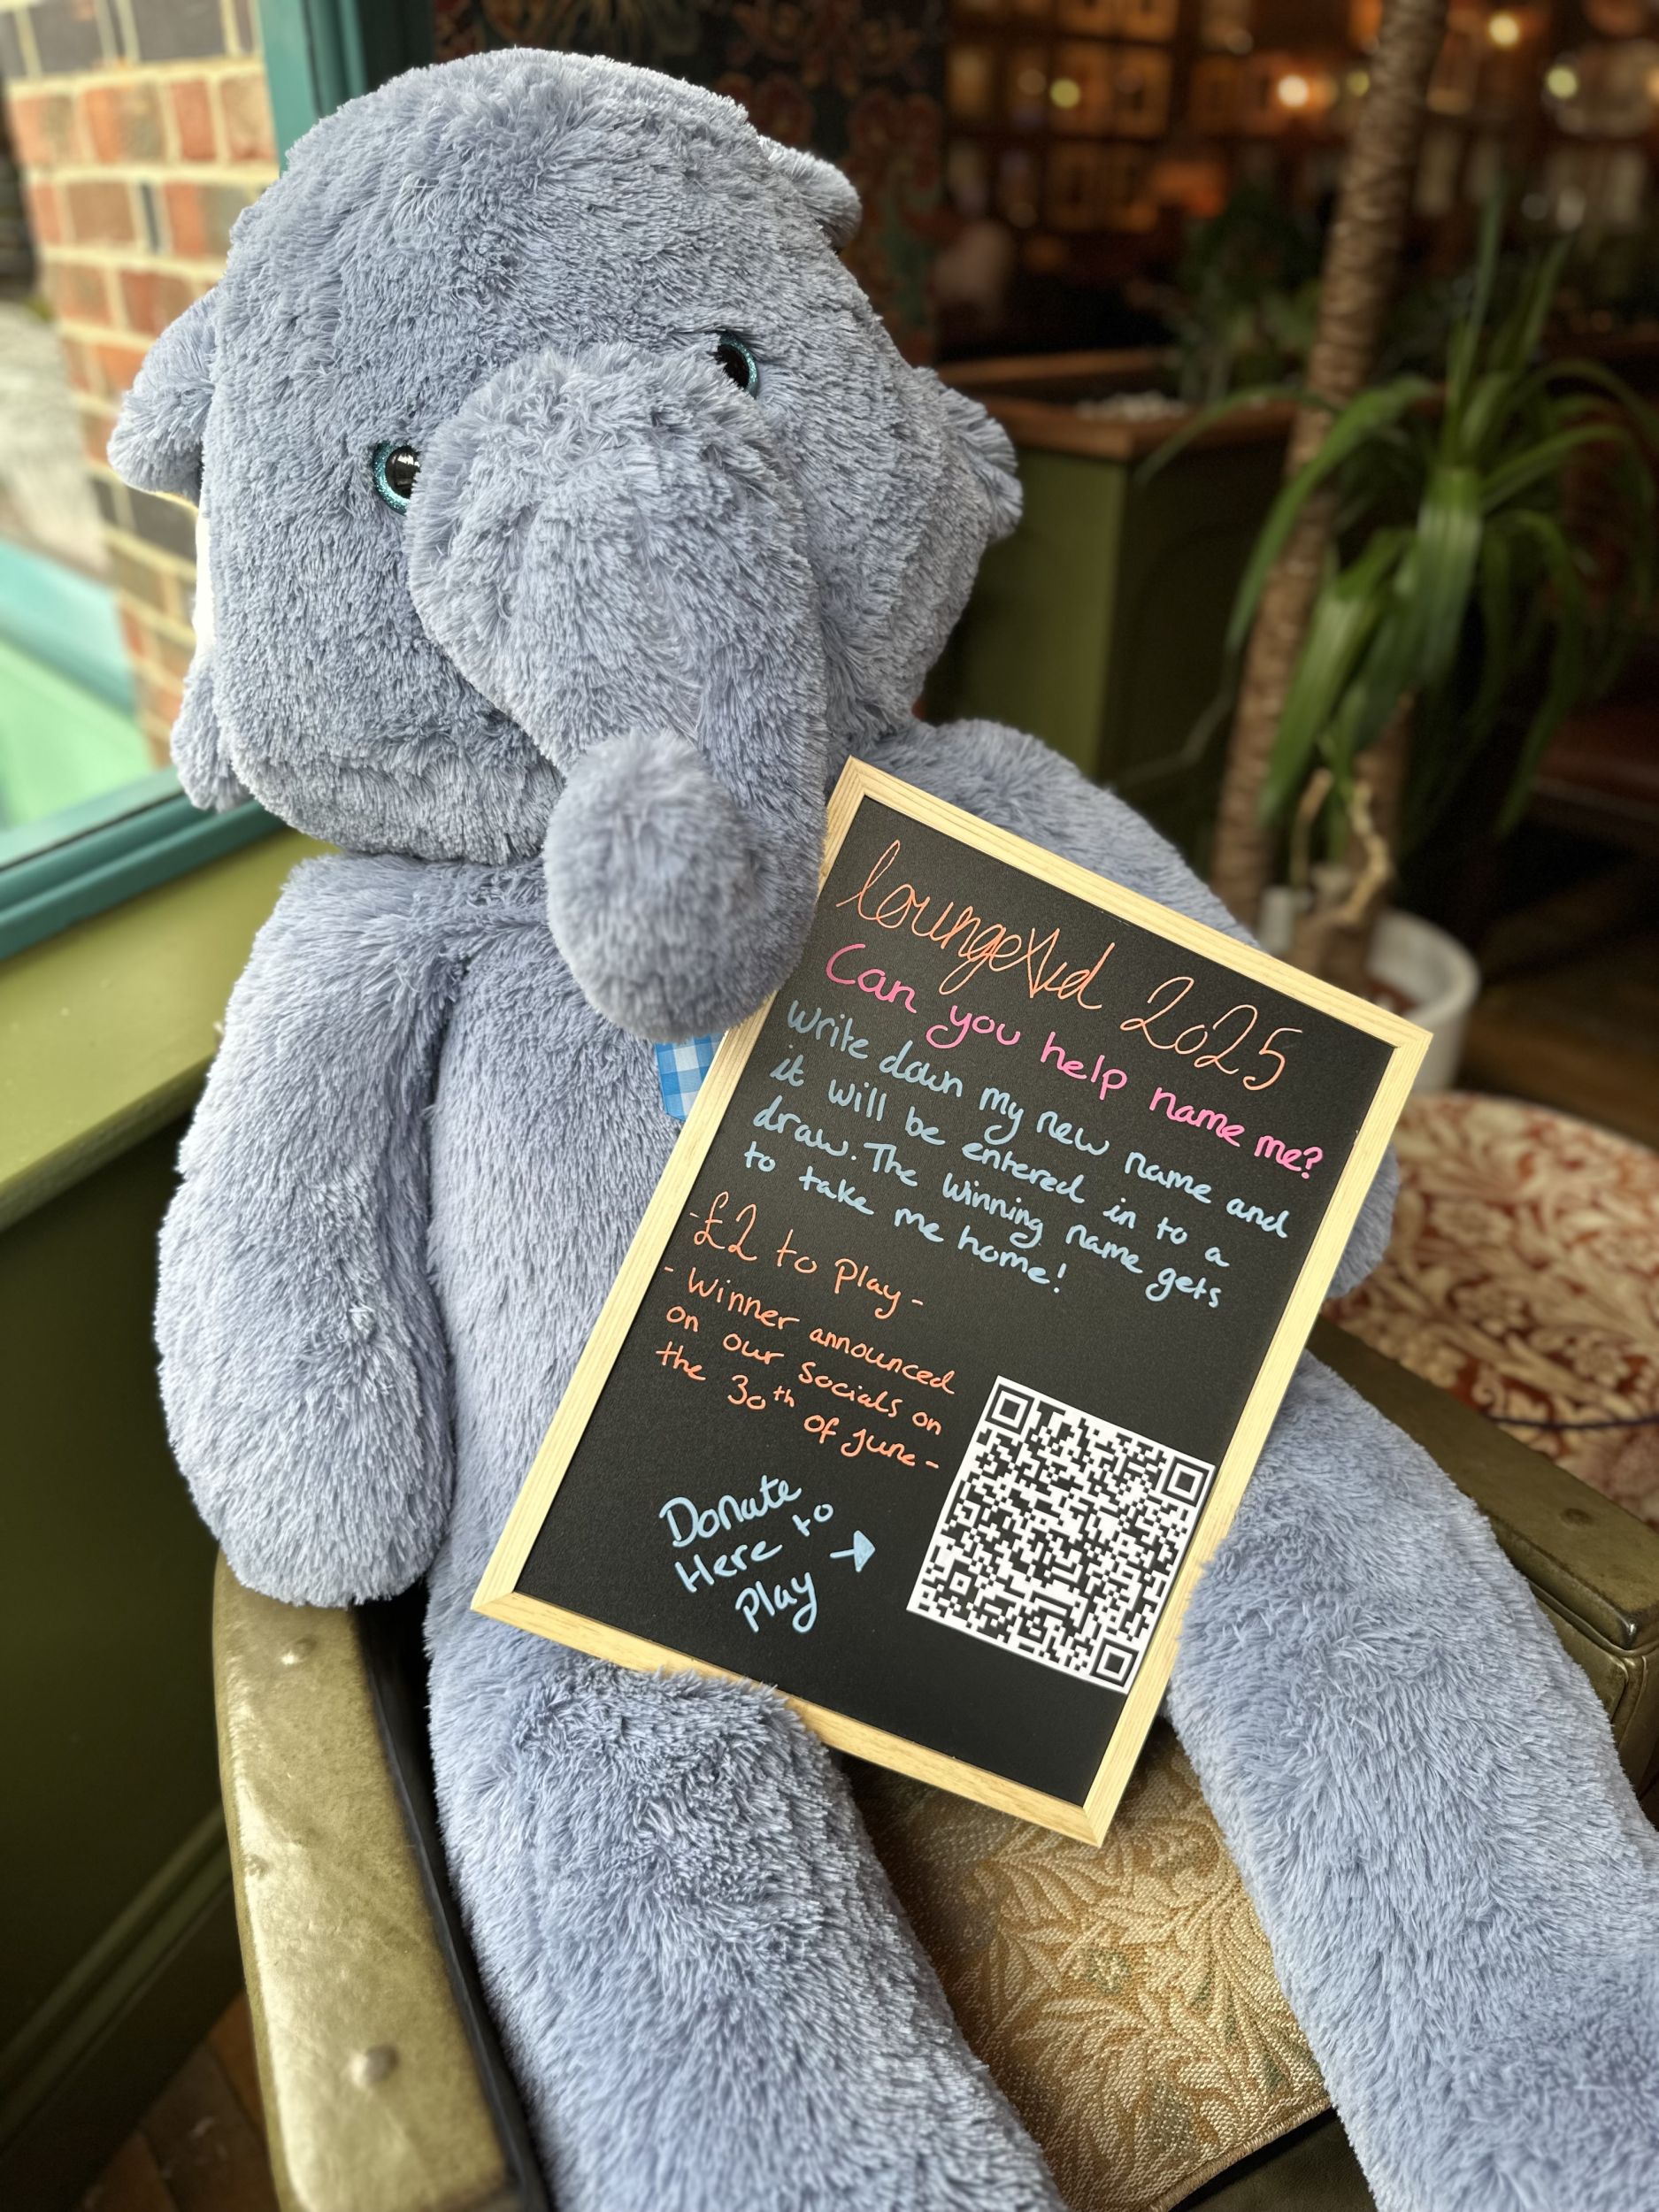 LoungeAid 2025
Can you help name me?
Write down my new name and
it will be entered in to a
draw. The winning name gets
to take me home!
-£2 to play-
- Winner announced
on our socials on
the 30th of June-
Donate
Here to
Play →